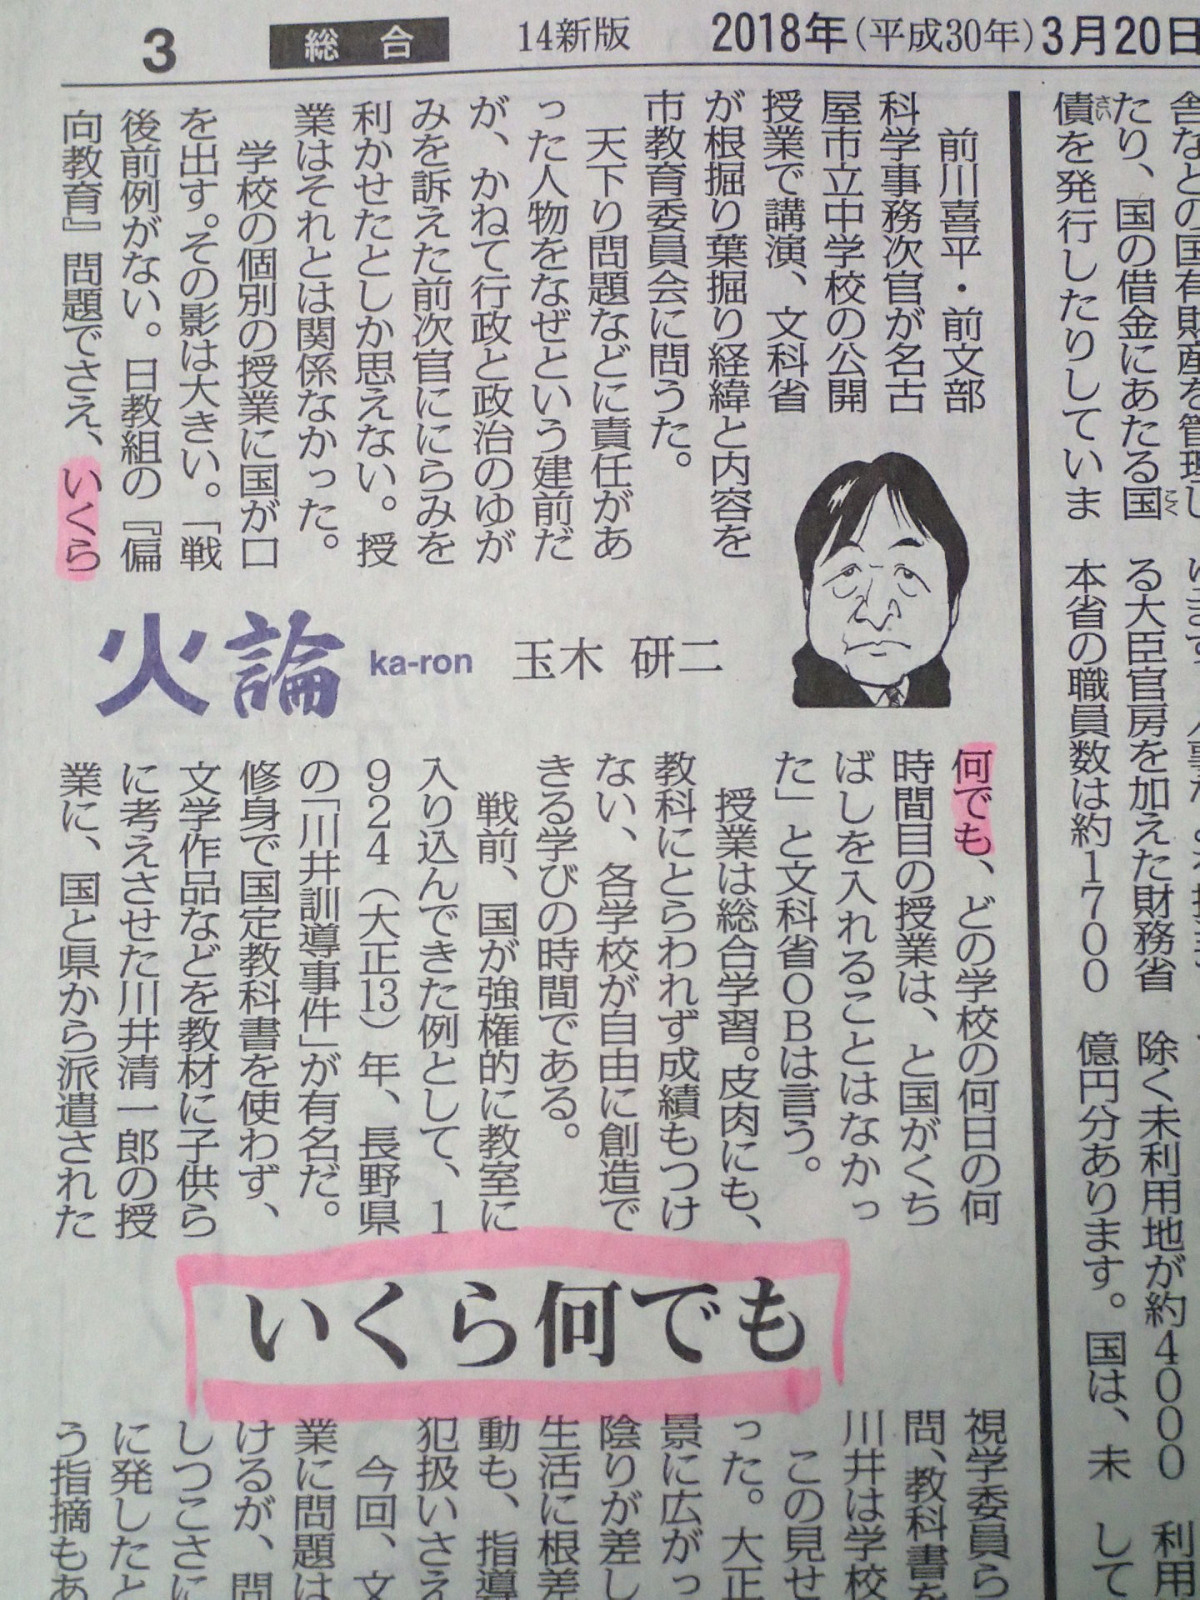 3
総合
14新版
2018年(平成30年)3月20日
舎などの国有財産を管理し
たり、国の借金にあたる国
債を発行したりしていま
さい
こく
る大臣官房を加えた財務省
本省の職員数は約1700
除く未利用地が約4000
億円分あります。国は、未
利用
して
前川喜平・前文部
科学事務次官が名古
屋市立中学校の公開
授業で講演、文科省
が根掘り葉掘り経緯と内容を
市教育委員会に問うた。
天下り問題などに責任があ
った人物をなぜという建前だ
が、かねて行政と政治のゆが
みを訴えた前次官ににらみを
利かせたとしか思えない。授
業はそれとは関係なかった。
学校の個別の授業に国が口
を出す。その影は大きい。「戦
後前例がない。日教組の『偏
向教育』問題でさえ、いくら
火論
ka-ron
玉木 研二
何でも、どの学校の何日の何
時間目の授業は、と国がくち
ばしを入れることはなかっ
た」と文科省OBは言う。
授業は総合学習。皮肉にも、
教科にとらわれず成績もつけ
ない、各学校が自由に創造で
きる学びの時間である。
戦前、国が強権的に教室に
入り込んできた例として、1
924（大正13）年、長野県
の「川井訓導事件」が有名だ。
修身で国定教科書を使わず、
文学作品などを教材に子供ら
に考えさせた川井清一郎の授
業に、国と県から派遣された
いくら何でも
視学委員ら
問、教科書を
川井は学校
この見せ
った。大正
景に広がっ
陰りが差し
生活に根差
動も、指導
犯扱いさえ
今回、文
業に問題は
けるが、問
しつこさに
に発したと
う指摘もあ